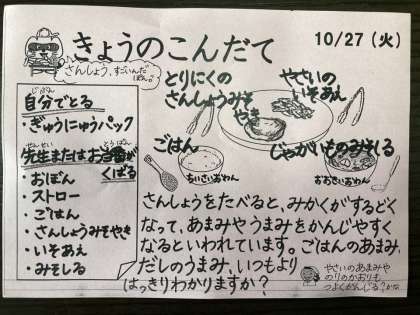 きょうのこんだて
10/27（火）
さんしょう、すごいんだ
とりにくの
さんしょうみそ
やき
やさいの
いそあえ
ごはん
ちいさいおわん
じゃがいものみそしる
おおきいおわん
じぶん
自分でとる
・ぎゅうにゅうパック
せんせい とうばん
先生またはお当番が
くばる
・おぼん
・ストロー
・ごはん
・さんしょうみそやき
・いそあえ
・みそしる
さんしょうをたべると、みかくがするどく
なって、あまみやうまみをかんじやすく
なるといわれています。ごはんのあまみ、
だしのうまみ、いつもより
はっきりわかりますか？
やさいのあまみや
のりのかおりも
つよくかんじる？かな